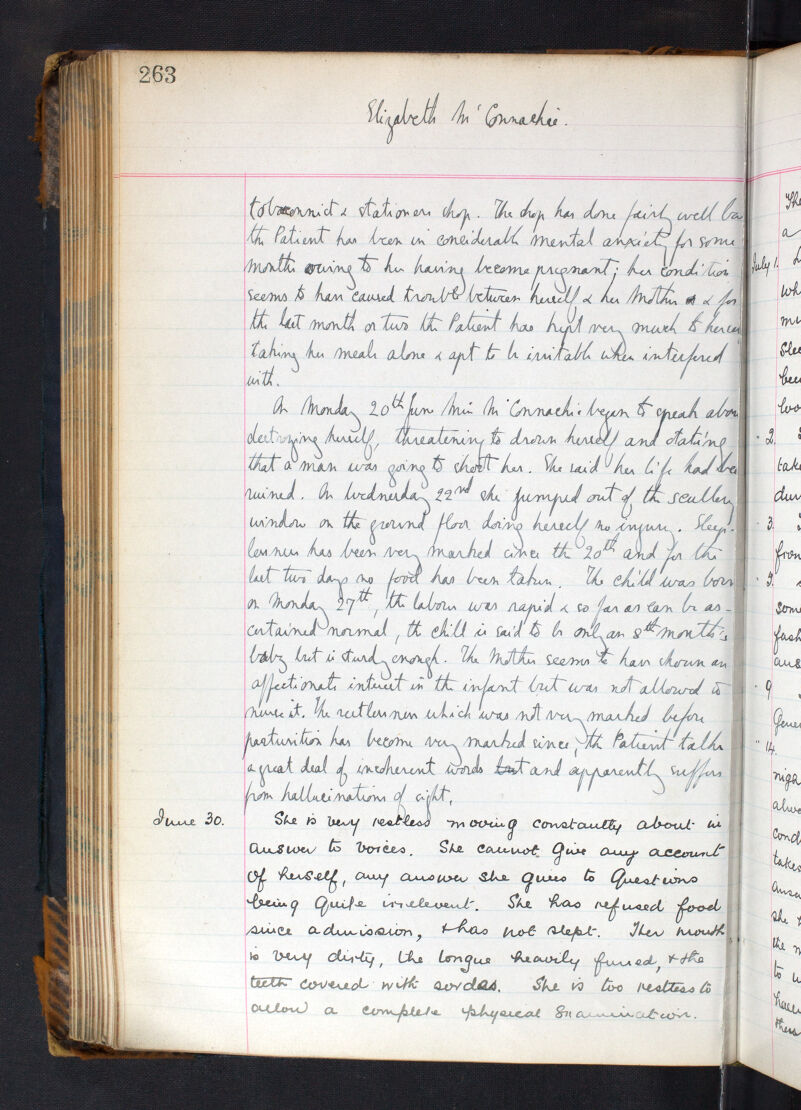 263
Elizabeth Mc Connachie.
tobaconnist & stationers shop. The shop has done fairly well bu
the Patient has been in considerable mental anxiety for some
months owing to her having become pregnant; her condition
seems to have caused trouble between herself & her Mother & for
the last month or two the Patient has kept very much to hersel
taking her meals alone & apt to be irritable when interfered
with.
On Monday 20th June Miss McConnachie began to speak abou
destroying herself, threatening to drown herself and stating
that a man was going to shoot her. She said her life had bee
ruined. On Wednesday 22nd she jumped out of the scullery
window on the ground floor doing herself no injury. Sleep-
lessness has been very marked since the 20th and for the
last two days no food has been taken. The child was born
on Monday 27th, the labour was rapid & so far as can be as-
certained normal, the child is said to be only an 8th month's
baby but is sturdy enough. The Mother seems to have shown an
affectionate interest in the infant but was not allowed to
nurse it. The restlessness which was not very marked before
parturition has become very marked since, the Patient talks
a great deal of incoherent words and apparently suffers
from hallucinations of sight.
June 30. She is very restless moving constantly about in
answer to voices. She cannot give any account
of herself, any answer she gives to Questions
being quite irrelevent. She has refused food
since admission, & has not slept. Her mouth
is very dirty, the tongue heavily furred, & the
teeth covered with sordes. She is too restless to
allow a complete physical Examination.
The
a
July 1.
wh
Slee
bee
2.
take
dur
3.
from
9.
some
fash
ans
9
Gene
14.
nigh
alwa
cond
takes
answ
she
the m
to